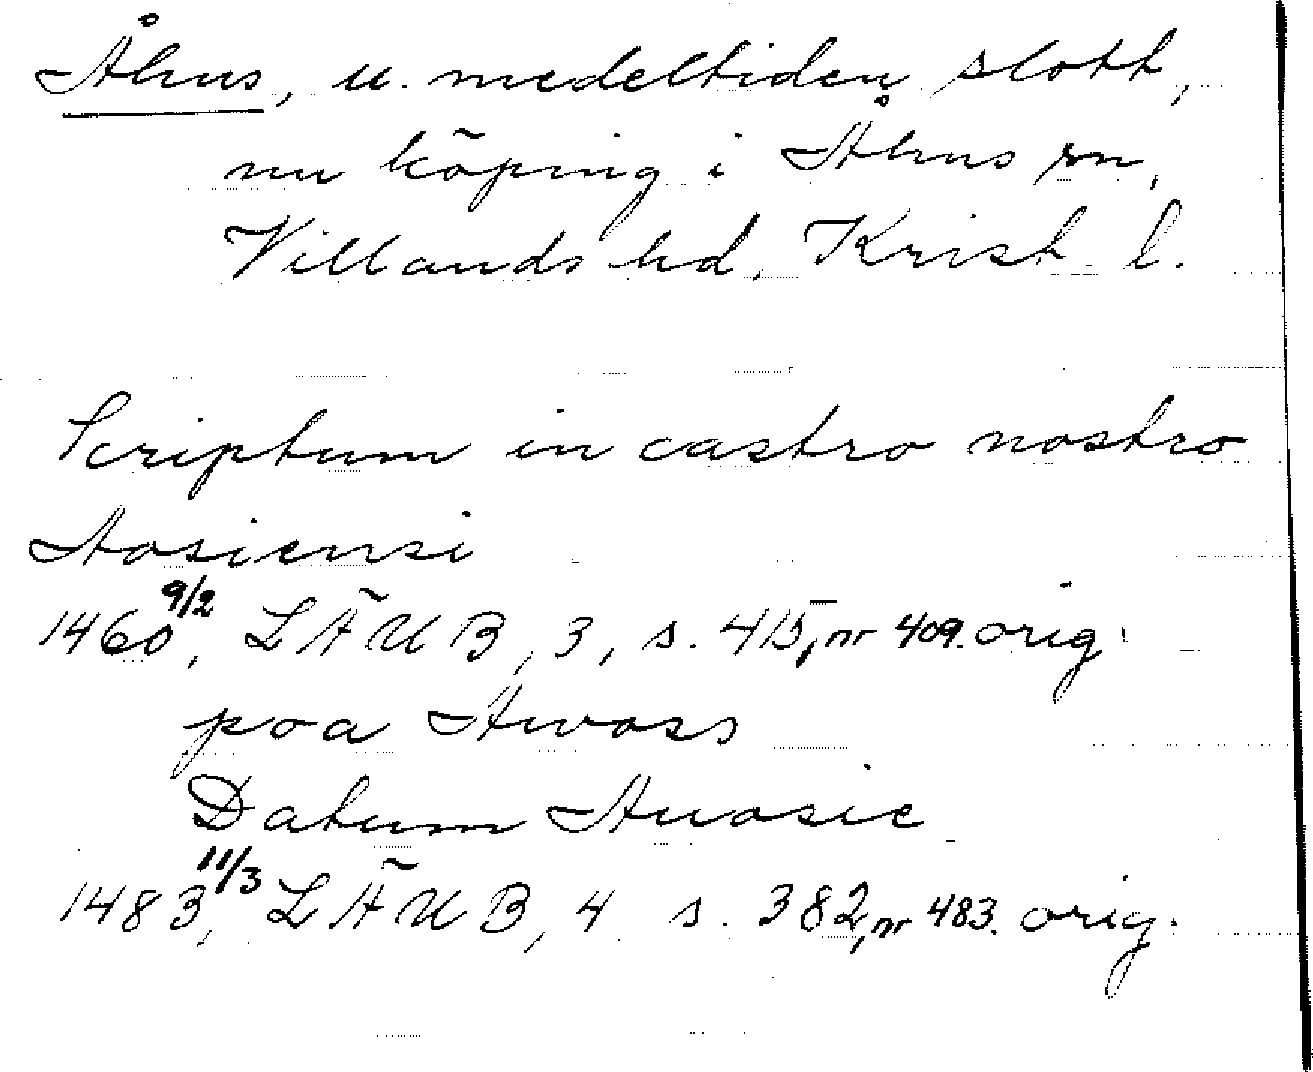 Åhus, u. medeltiden slott,
nu köping i Åhus sn,
Villands hd, Krist. l.
Scriptum in castro nostro
Aosiensi
1460 9/2, LÄUB, 3, s. 415, nr 409. orig.
poa Awoss
Datum Auosie
1483 11/3, LÄUB, 4 s. 382, nr 483. orig.